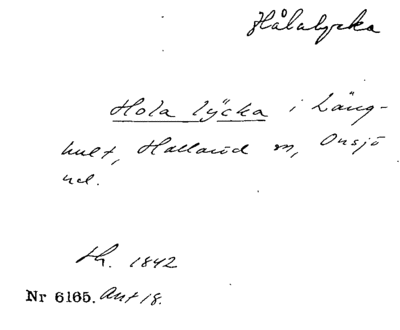 Hålalycka
Hola lycka i Läng-
hult, Halland m, Onsjö
ud.
th. 1842
Nr 6165. Ant 18.